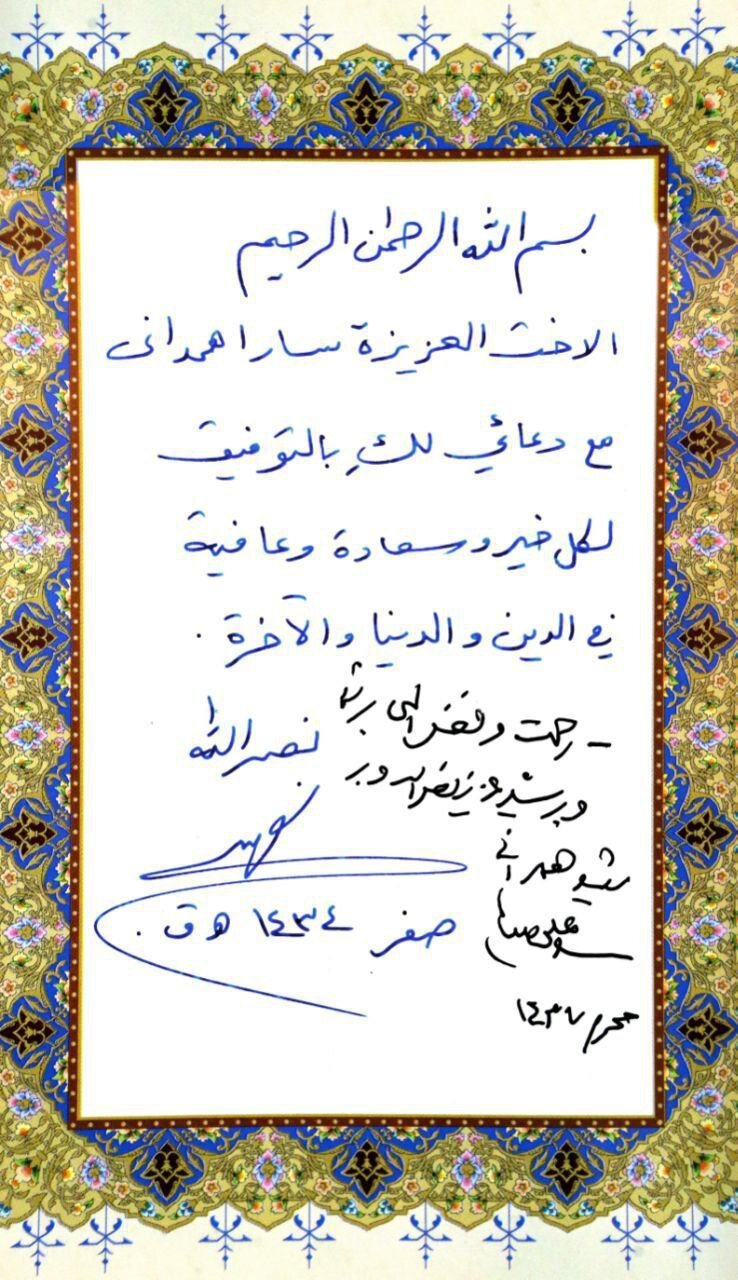 بسم الله الرحمٰن الرحيم
الاخت العزيزة سارا همدانى
مع دعائي لكِ بالتوفيق
لكل خير وسعادة وعافية
في الدين والدنيا والآخرة .
نصر الله
صفر ١٤٣٤ هـ ق .
- رحمت و فضل الهى بر شما
و بر سيد عزيز نصرالله و بر
شهيد همدانى
محرم ١٤٣٧